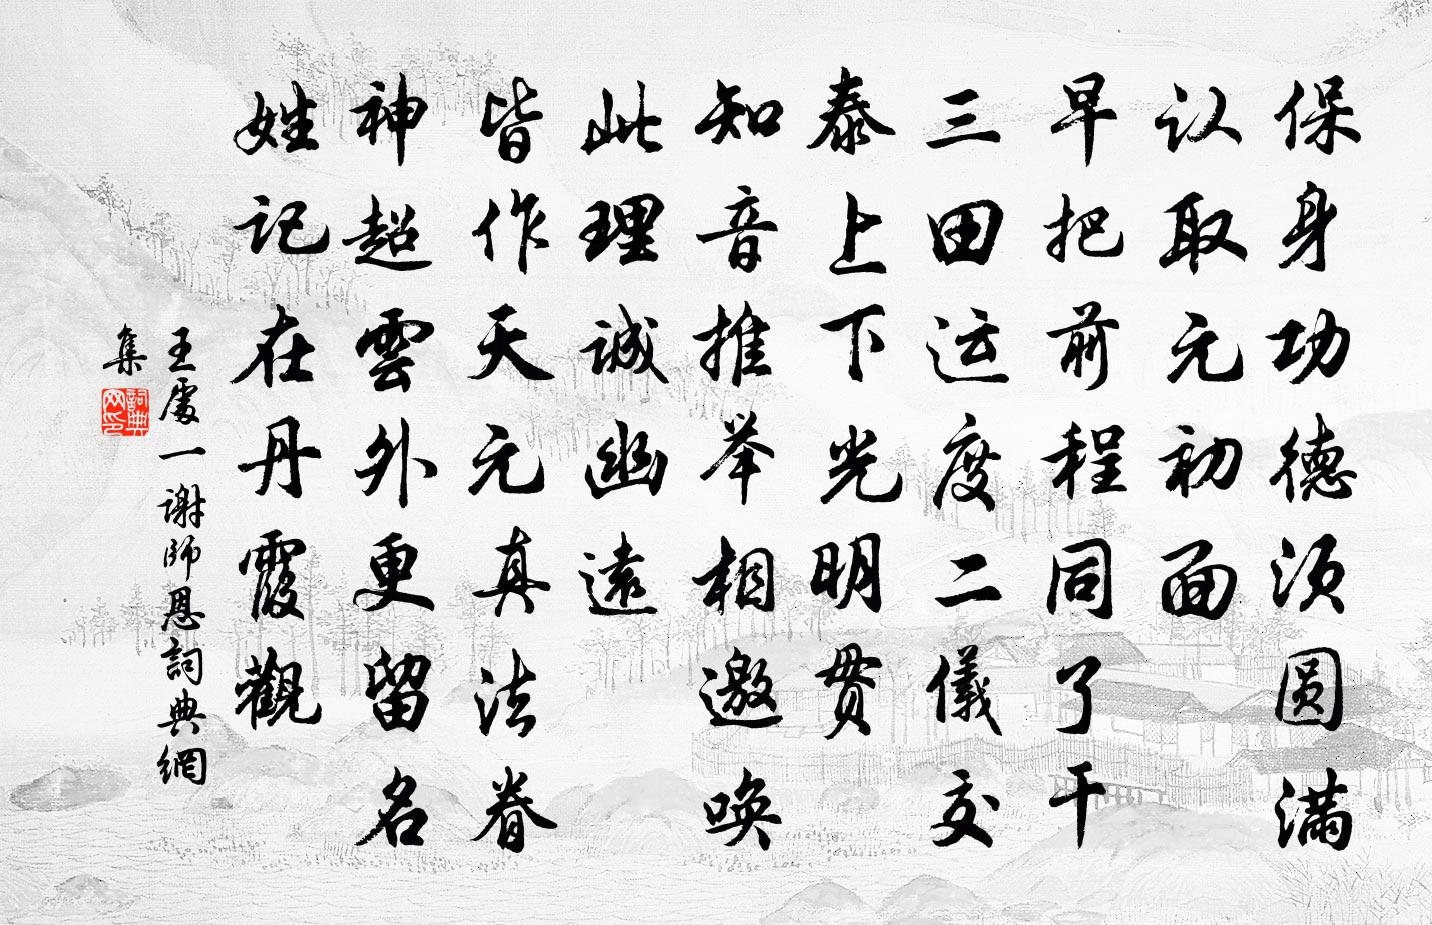 保身功德须圆满
认取元初面
早把前程同了干
三田运度二儀交
泰上下光明贯
知音推举相邀唤
此理诚幽远
皆作天元真法眷
神超雲外更留名
姓记在丹霞觀
王處一谢師恩詞典網
集
詞典
网印